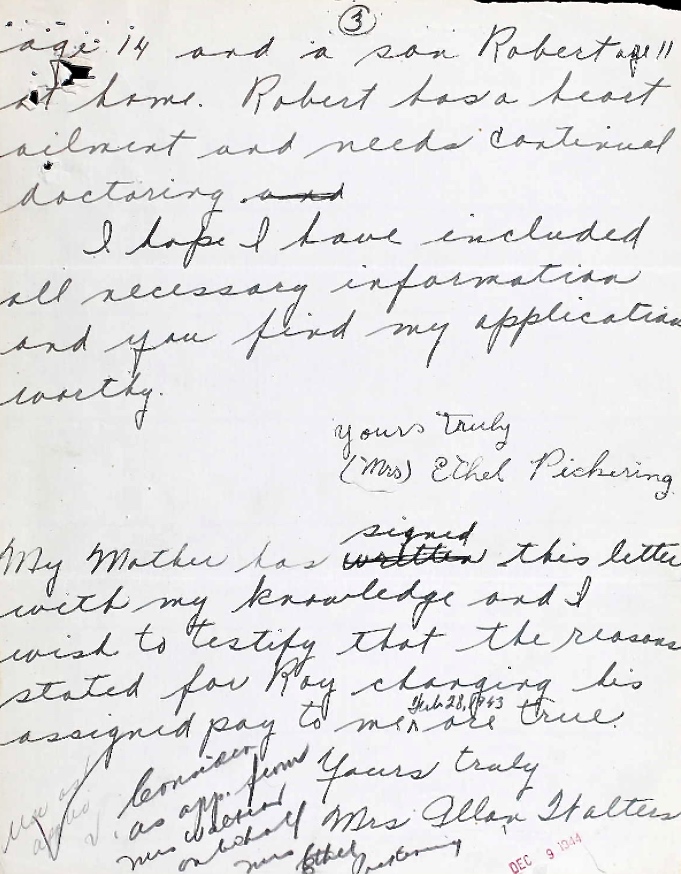 3
age 14 and a son Robert age 11
at home. Robert has a heart
ailment and needs continual
doctoring and
I hope I have included
all necessary information
and you find my application
worthy.
Yours truly
(Mrs) Ethel Pickering
signed
My Mother has written this letter
with my knowledge and I
wish to testify that the reasons
stated for Ray changing his
Feb. 28, 1943
assigned pay to me ^ are true.
Yours truly
Mrs Allan Walters
Consider
as app. from
Mrs Walters
on behalf
Mrs Ethel Pickering
DEC 9 1944